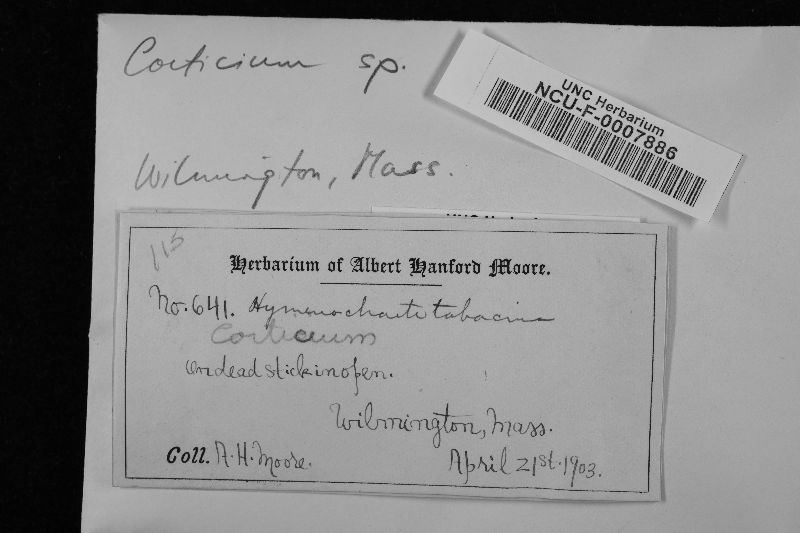 Corticium sp.
UNC Herbarium
NCU-F-0007886
Wilmington, Mass.
115
Herbarium of Albert Hanford Moore.
No. 641. Hymenochaete tabacina
Corticium
On dead stick in open.
Wilmington, Mass.
Coll. A. H. Moore.
April 21st. 1903.